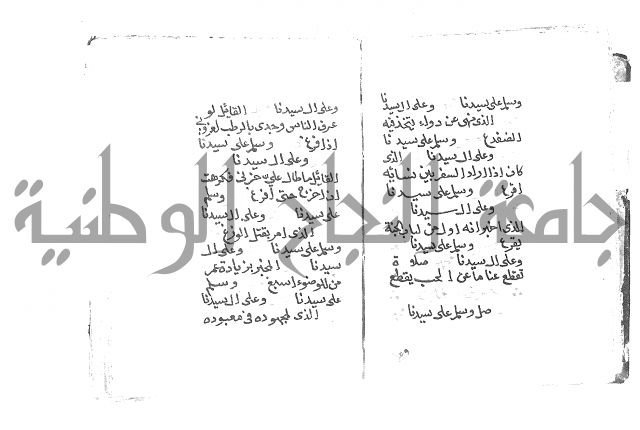 وسلم على سيدنا وعلى ال سيدنا
الذي نهى عن دواء يتخذ فيه
الضفدع وسلم على سيدنا
وعلى ال سيدنا الذي
كان اذا اراد السفر بين نسائه
اقرع وسلم على سيدنا
وعلى ال سيدنا
الذي اخبر انه اول من باب الجنة
يقرع وسلم على سيدنا
وعلى ال سيدنا صلاة
تقطع عنا ما عن الحب يقطع
صل وسلم على سيدنا
وعلى ال سيدنا القائل لو
عرف الناس وحدي بالرطب لعزوني
اذا فرغ وسلم على سيدنا
وعلى ال سيدنا
القائل ما طال علي حزبي فكرهت
ان اخرج حتى افرغ وسلم
على سيدنا وعلى ال سيدنا
الذي امر بقتل الوزغ
وسلم على سيدنا وعلى ال
سيدنا المخبر بزيادة عمر
من للوضوء اسبغ وسلم
على سيدنا وعلى ال سيدنا
الذي مجهوده في معبوده
٥٩
جامعة النجاح الوطنية